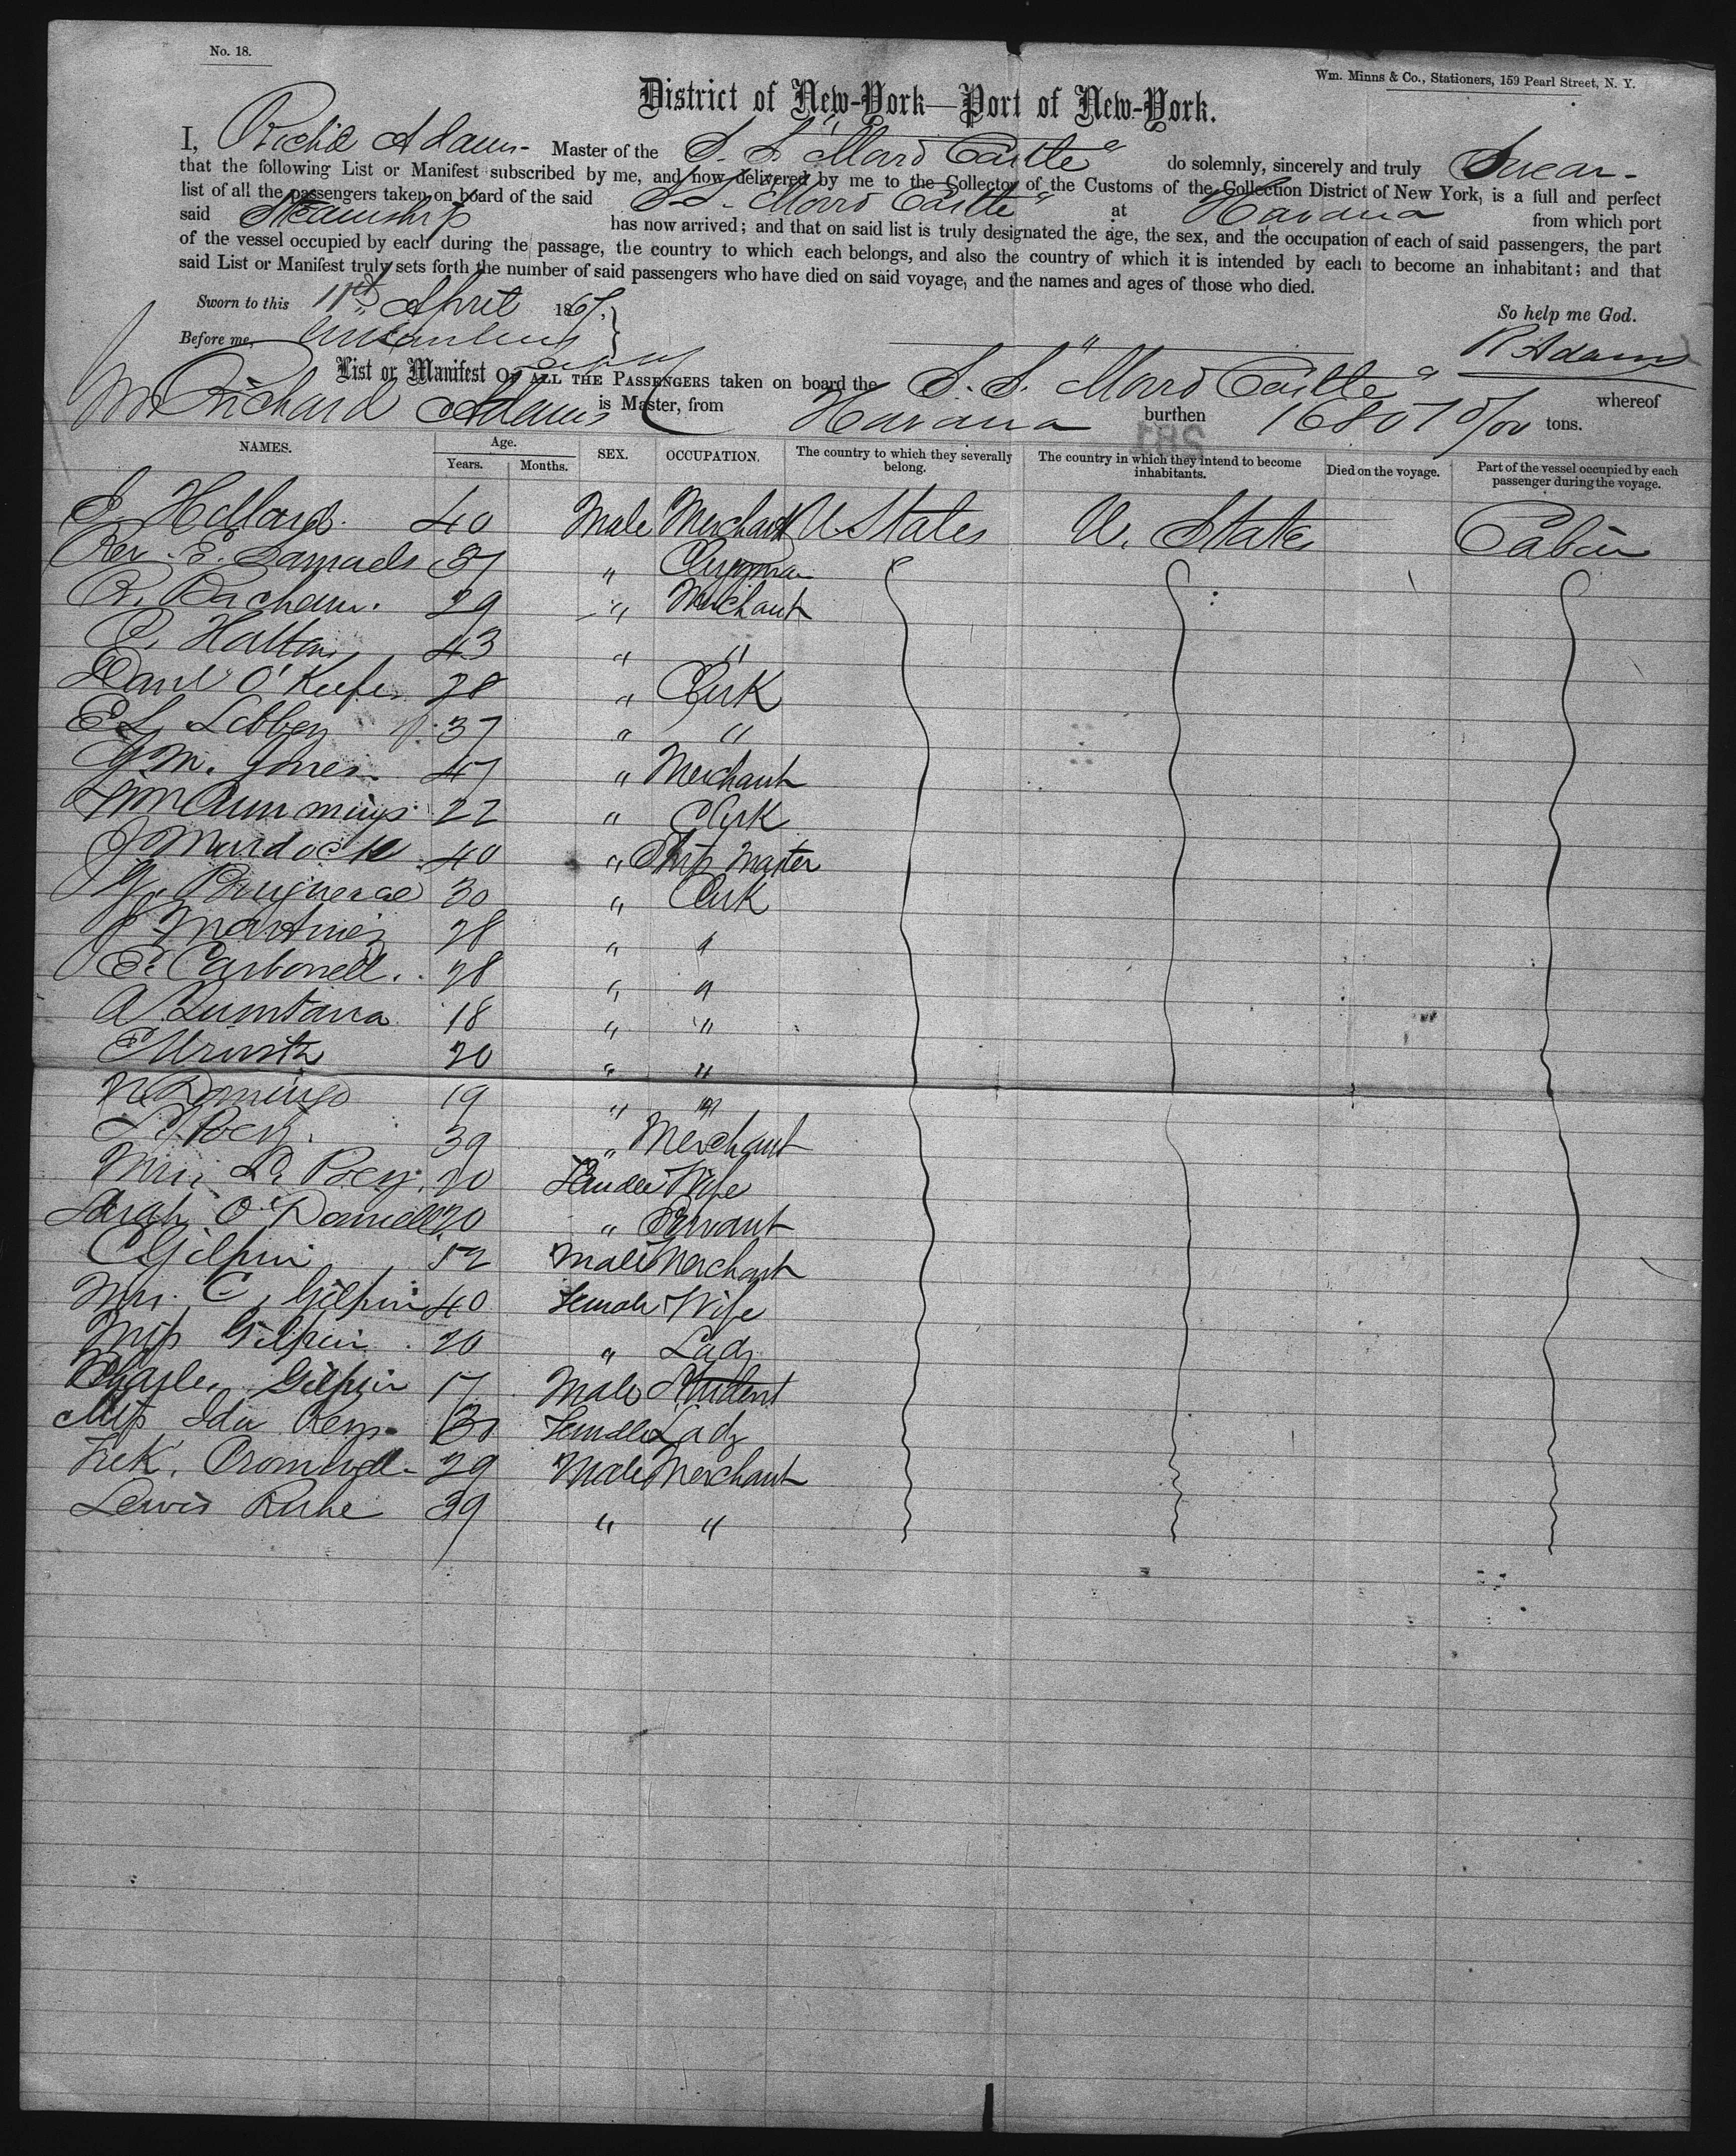 No. 18.
Wm. Minns & Co., Stationers, 159 Pearl Street, N. Y.
District of New-York—Port of New-York.
I, Richd Adams Master of the S. S. "Morro Castle" do solemnly, sincerely and truly Swear
that the following List or Manifest subscribed by me, and now delivered by me to the Collector of the Customs of the Collection District of New York, is a full and perfect
list of all the passengers taken on board of the said S. S. "Morro Castle" at Havana from which port
said Steamship has now arrived; and that on said list is truly designated the age, the sex, and the occupation of each of said passengers, the part
of the vessel occupied by each during the passage, the country to which each belongs, and also the country of which it is intended by each to become an inhabitant; and that
said List or Manifest truly sets forth the number of said passengers who have died on said voyage, and the names and ages of those who died.
Sworn to this April 1867,
So help me God.
Before me,
R Adams
List or Manifest OF ALL THE PASSENGERS taken on board the S. S. "Morro Castle" whereof
Richard Adams is Master, from Havana burthen 1680 tons.
NAMES. Age. Years. Months. SEX. OCCUPATION. The country to which they severally belong. The country in which they intend to become inhabitants. Died on the voyage. Part of the vessel occupied by each passenger during the voyage.
40 Male Merchant U States U. States Cabin
Rev. E. Samuels 37 " Clergyman
R. 29 " Merchant
43 " "
Danl O'Keefe 28 " Clerk
E L Libbey 37 " "
G M. Jones 47 " Merchant
Wm Cummings 22 " Clerk
J Murdock 40 " Ship Master
30 " Clerk
J Martinez 28 " "
E. Carbonell 28 " "
A Quintana 18 " "
20 " "
N Domingo 19 " "
Poey 39 " Merchant
Mrs. Poey 20 Female Wife
Sarah O'Donnell 20 " Servant
C Gilpin 52 Male Merchant
Mrs. C. Gilpin 40 Female Wife
Miss Gilpin 20 " Lady
Charles Gilpin 17 Male Student
Miss Ida Female Lady
Fredk. Cromwell 29 Male Merchant
Lewis Ruhe 39 " "